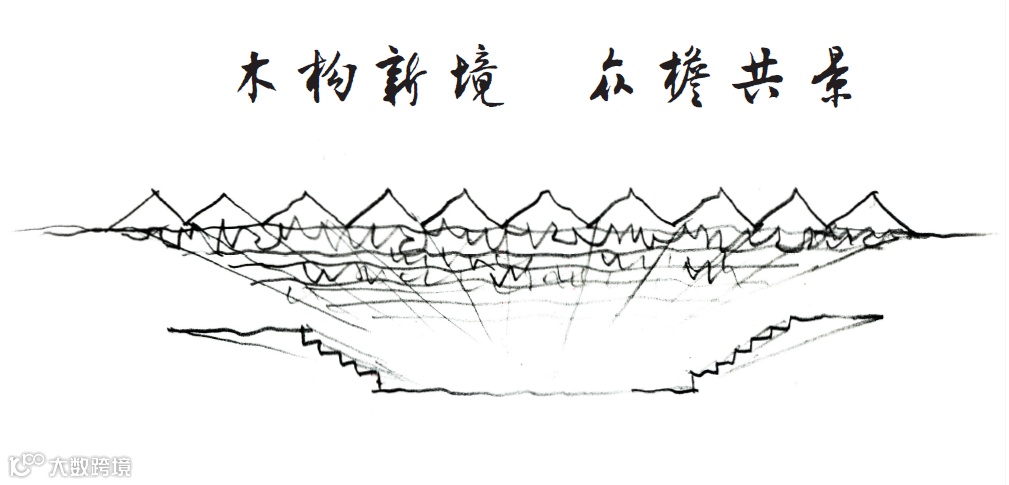 木构新境 众檐共景
大数跨境